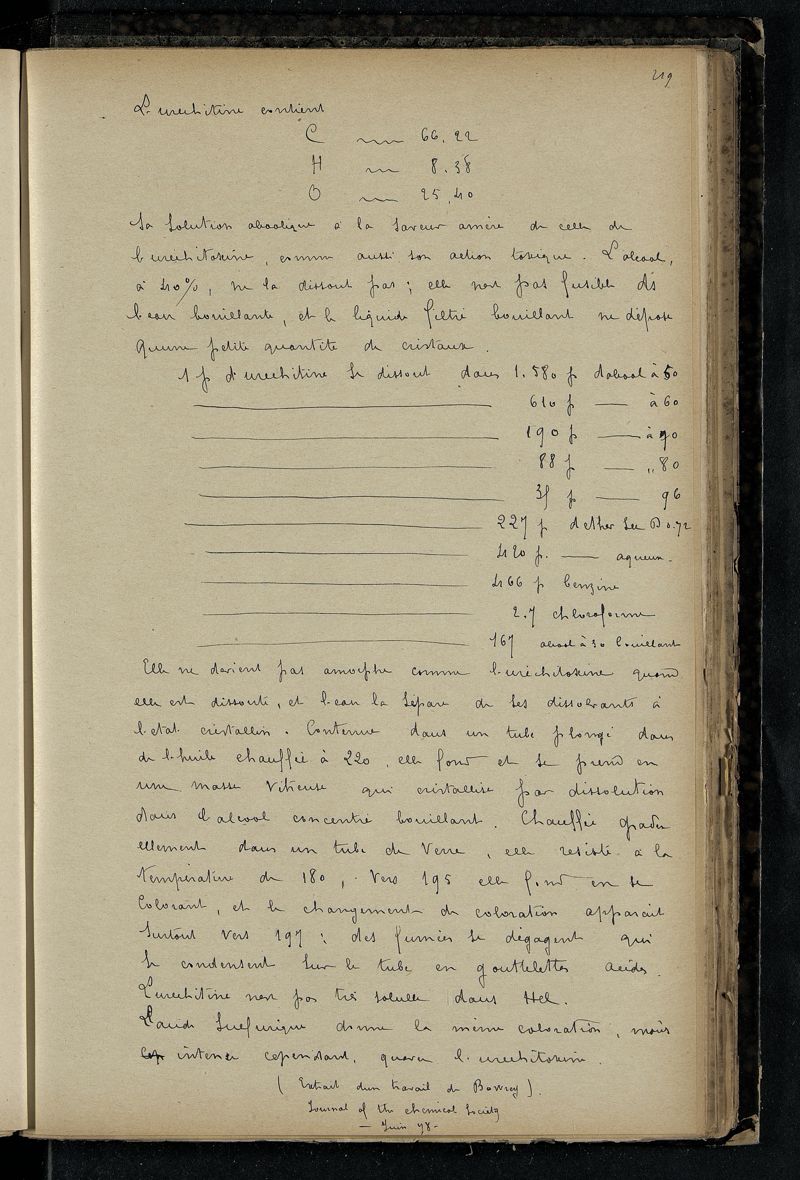 219
L'urechitine contient
C — 66.22
H — 8.38
O — 25.40
Sa solution alcoolique a la saveur amère de celle de
l'urechitoxine, comme aussi son action toxique. L'alcool,
à 40%, ne la dissout pas; elle n'est pas fusible ds
l'eau bouillante, et le liquide filtré bouillant ne dépose
qu'une petite quantité de cristaux.
1 p d'urechitine se dissout dans 1.580 p d'alcool à 50
——— 610 p — à 60
——— 190 p — à 70
——— 88 p — „ 80
——— 35 p — 96
——— 227 p d'ether sec D 0.72
——— 420 p. — aqueux.
——— 466 p benzine
——— 2.7 chloroforme
——— 167 alcool à 50 bouillant
Elle ne devient pas amorphe comme l'uréchitoxine quand
elle est dissoute, et l'eau la sépare de ses dissolvants à
l'etat cristallin. Contenue dans un tube plongé dans
de l'huile chauffée à 220, elle fond et se prend en
une masse vitreuse qui cristallise par dissolution
dans l'alcool concentré bouillant. Chauffée gradu
ellement dans un tube de verre, elle résiste à la
température de 180, vers 195 elle fond en se
colorant, et le changement de coloration apparait
surtout vers 197; des fumées se dégagent qui
se condensent sur le tube en gouttelettes acides.
L'urechitine n'est pas très soluble dans HCl.
L'acide sulfurique donne la même coloration, moins
intense cependant, qu'avec l'urechitoxine.
(Extrait d'un travail de Bowrey).
Journal of the chemical Society
— Juin 78 -